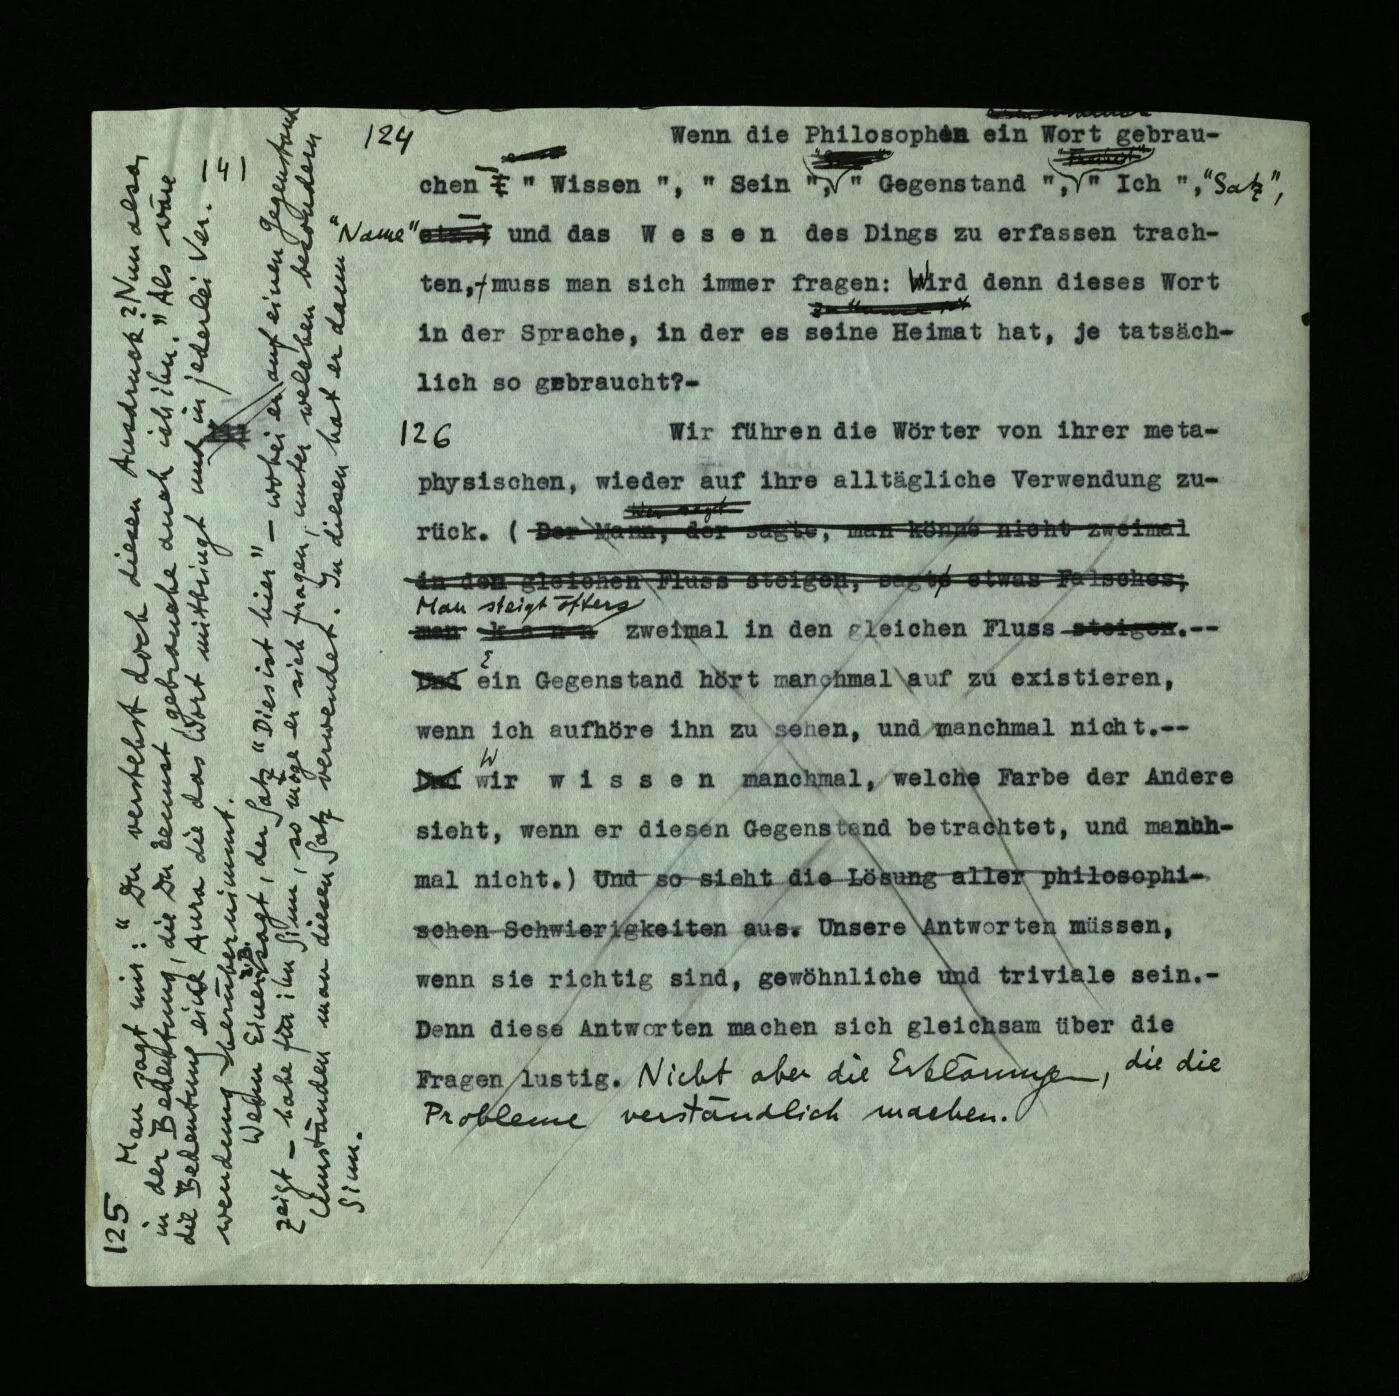 124 Wenn die Philosophen ein Wort gebrau-
chen - " Wissen ", " Sein ", " Gegenstand ", " Ich ", "Satz",
"Name" - und das W e s e n des Dings zu erfassen trach-
ten, muss man sich immer fragen: Wird denn dieses Wort
in der Sprache, in der es seine Heimat hat, je tatsäch-
lich so gebraucht?-
126 Wir führen die Wörter von ihrer meta-
physischen, wieder auf ihre alltägliche Verwendung zu-
rück. ( Der Mann, der sagte, man könne nicht zweimal
Wer sagt
in den gleichen Fluss steigen, sagte etwas Falsches;
Man steigt öfters
man k a n n zweimal in den gleichen Fluss steigen.--
Und Ein Gegenstand hört manchmal auf zu existieren,
wenn ich aufhöre ihn zu sehen, und manchmal nicht.--
Und Wir w i s s e n manchmal, welche Farbe der Andere
sieht, wenn er diesen Gegenstand betrachtet, und manch-
mal nicht.) Und so sieht die Lösung aller philosophi-
schen Schwierigkeiten aus. Unsere Antworten müssen,
wenn sie richtig sind, gewöhnliche und triviale sein.-
Denn diese Antworten machen sich gleichsam über die
Fragen lustig. Nicht aber die Erklärungen, die die
Probleme verständlich machen.
125 Man sagt mir: "Du verstehst doch diesen Ausdruck? Nun also,
in der Bedeutung, die Du kennst gebrauche auch ich ihn." Als wäre
die Bedeutung eine Aura die das Wort mitbringt und in jederlei Ver-
wendung herübernimmt.
141
Wenn Einer z.B. sagt, der Satz "Dies ist hier" – wobei er auf einen Gegenstand
zeigt – habe für ihn Sinn, so möge er sich fragen, unter welchen besondern
Umständen man diesen Satz verwendet. In diesen hat er dann
Sinn.